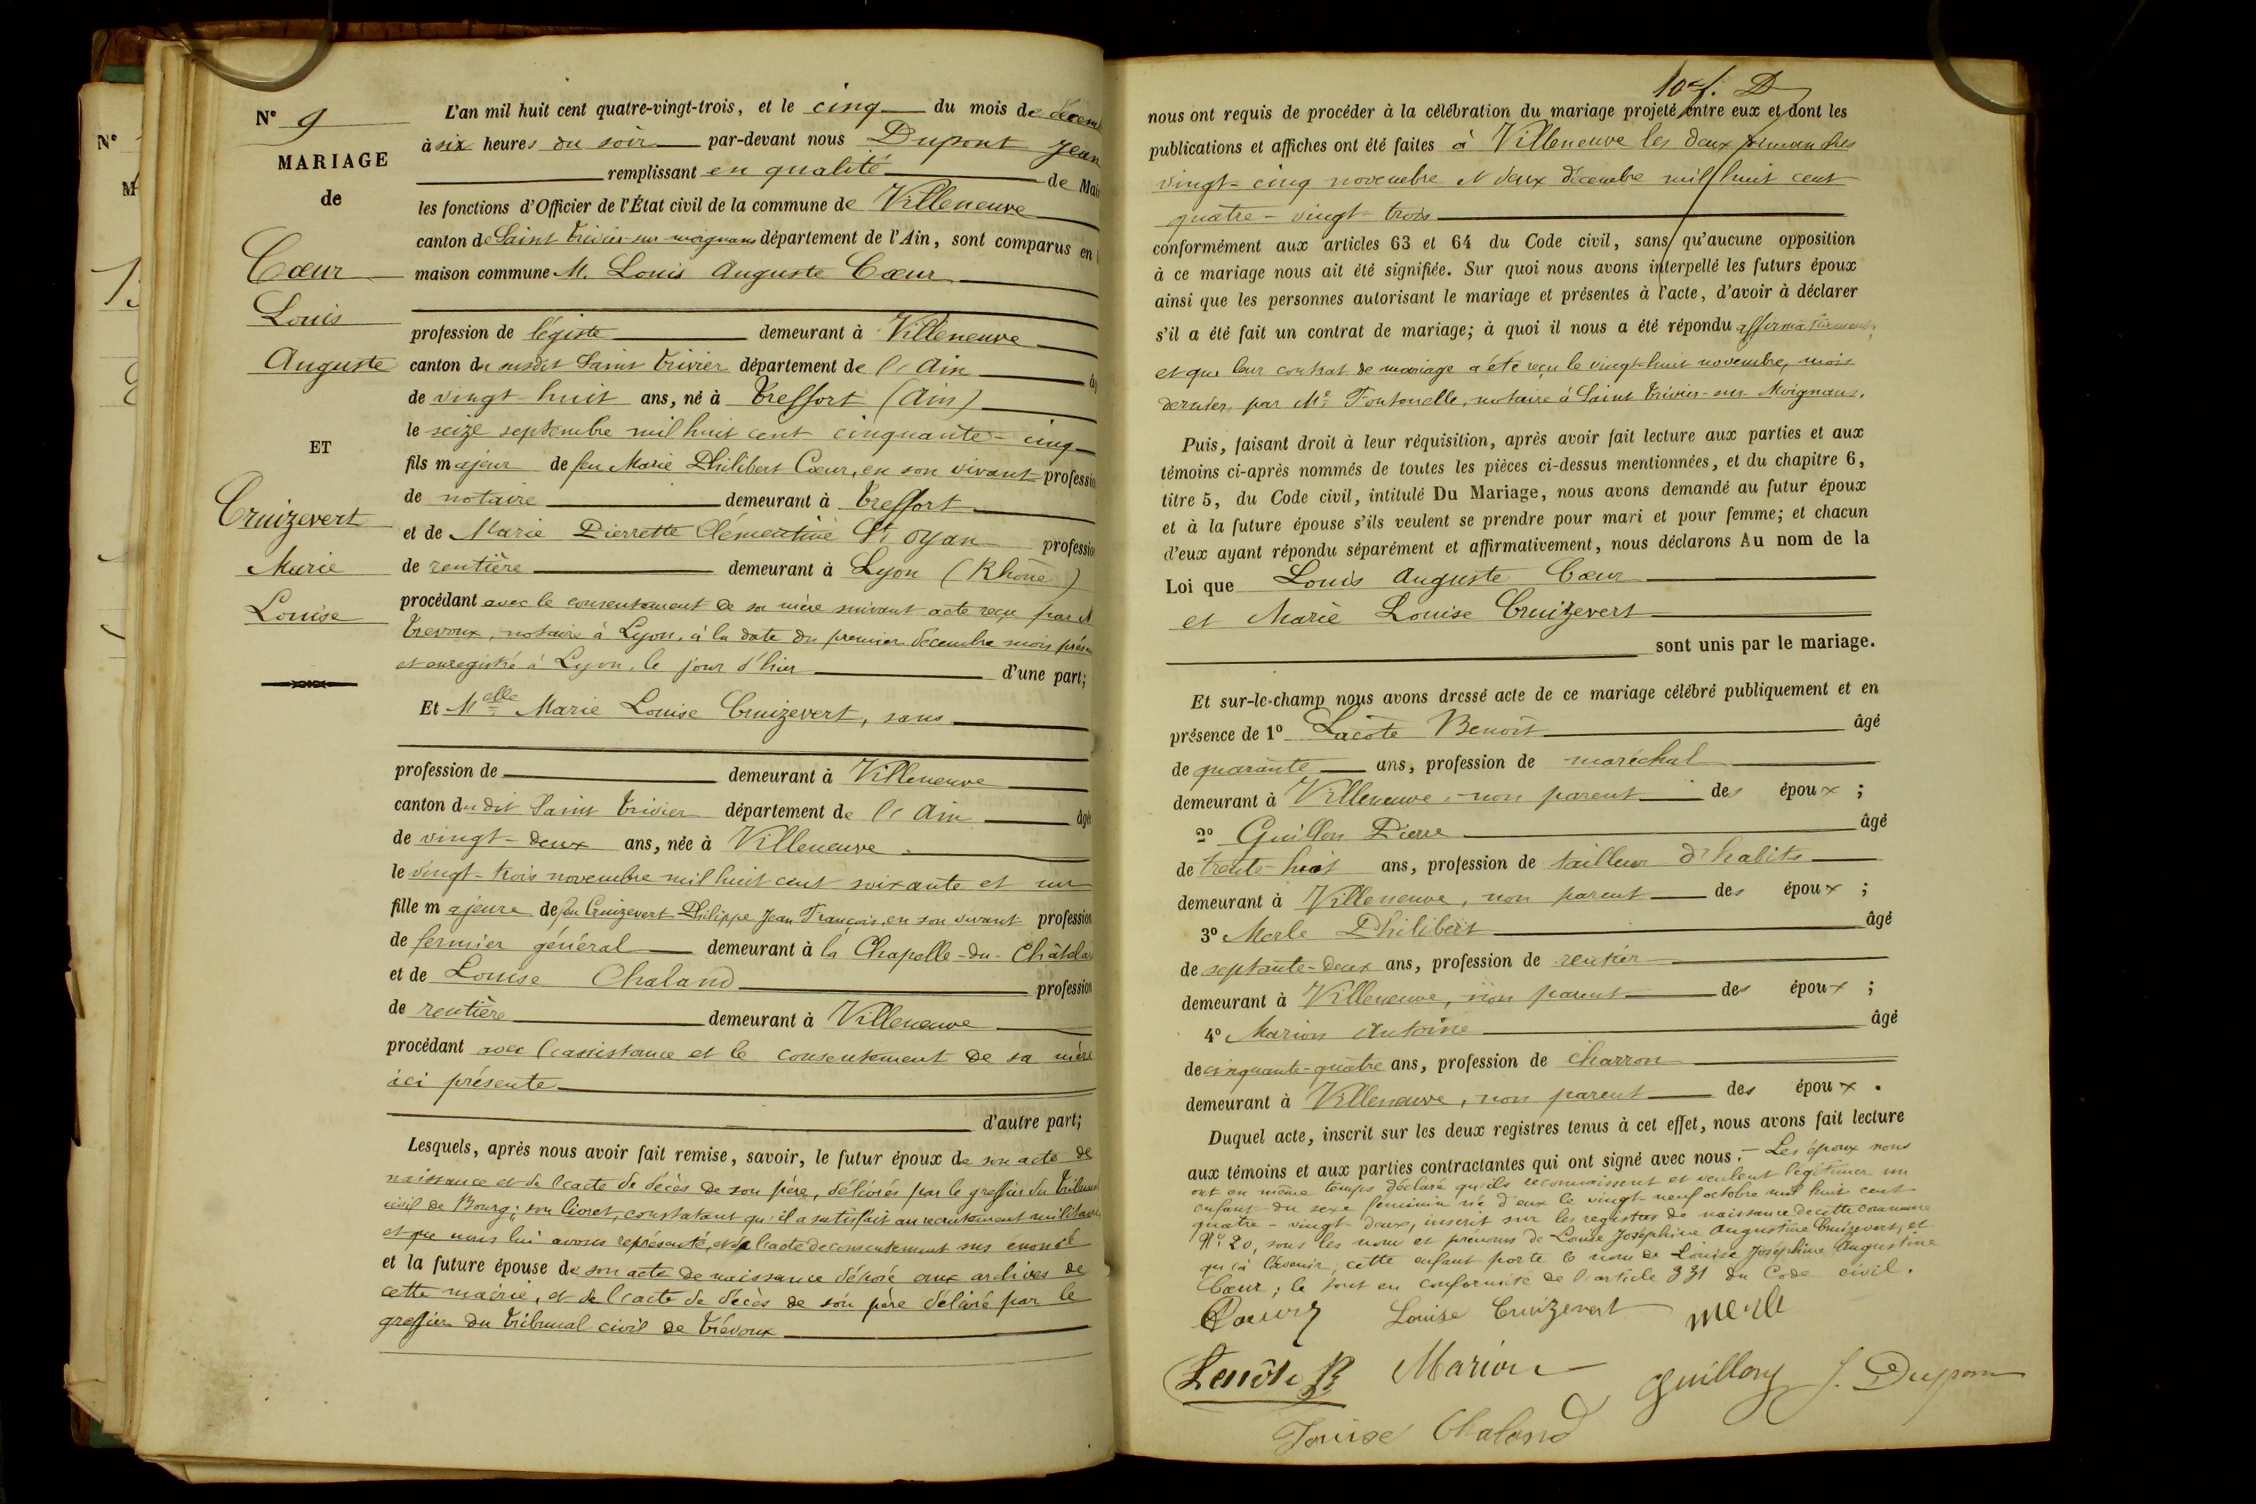 N° 9
MARIAGE
de
Cœur
Louis
Auguste
ET
Cruizevert
Marie
Louise
L'an mil huit cent quatre-vingt-trois, et le cinq du mois de décem
à six heures du soir par-devant nous Dupont Jean
remplissant en qualité de Mai
les fonctions d'Officier de l'État civil de la commune de Villeneuve
canton de Saint Trivier sur moignans département de l'Ain, sont comparus en l
maison commune M. Louis Auguste Cœur
profession de légiste demeurant à Villeneuve
canton du susdit Saint Trivier département de l'Ain âg
de vingt-huit ans, né à Treffort (Ain)
le seize septembre mil huit cent cinquante-cinq
fils majeur de feu Marie Philibert Cœur, en son vivant profession
de notaire demeurant à Treffort
et de Marie Pierrette Clémentine St Oyan profession
de rentière demeurant à Lyon (Rhône)
procédant avec le consentement de sa mère suivant acte reçu par M
Trevoux, notaire à Lyon, à la date du premier décembre mois prése
et enregistré à Lyon, le jour d'hier d'une part;
Et Melle Marie Louise Cruizevert, sans
profession de demeurant à Villeneuve
canton du dit Saint Trivier département de l'Ain âgé
de vingt-deux ans, née à Villeneuve
le vingt-trois novembre mil huit cent soixante et un
fille majeure de feu Cruizevert Philippe Jean François, en son vivant profession
de fermier général demeurant à la Chapelle-du-Châtela
et de Louise Chaland profession
de rentière demeurant à Villeneuve
procédant avec l'assistance et le consentement de sa mère
ici présente
d'autre part;
Lesquels, après nous avoir fait remise, savoir, le futur époux de son acte de
naissance et de l'acte de décès de son père, délivrés par le greffier du Tribunal
civil de Bourg; son livret, constatant qu'il a satisfait au recrutement militaire
et que nous lui avons représenté, et de l'acte de consentement sus énoncé
et la future épouse de son acte de naissance déposé aux archives de
cette mairie, et de l'acte de décès de son père délivré par le
greffier du Tribunal civil de Trévoux
nous ont requis de procéder à la célébration du mariage projeté entre eux et dont les
publications et affiches ont été faites à Villeneuve les deux dimanches
vingt-cinq novembre et deux décembre mil huit cent
quatre-vingt-trois
conformément aux articles 63 et 64 du Code civil, sans qu'aucune opposition
à ce mariage nous ait été signifiée. Sur quoi nous avons interpellé les futurs époux
ainsi que les personnes autorisant le mariage et présentes à l'acte, d'avoir à déclarer
s'il a été fait un contrat de mariage; à quoi il nous a été répondu affirmativement;
et que leur contrat de mariage a été reçu le vingt-huit novembre, mois
dernier, par Me Fontenelle, notaire à Saint Trivier-sur-Moignans.
Puis, faisant droit à leur réquisition, après avoir fait lecture aux parties et aux
témoins ci-après nommés de toutes les pièces ci-dessus mentionnées, et du chapitre 6,
titre 5, du Code civil, intitulé Du Mariage, nous avons demandé au futur époux
et à la future épouse s'ils veulent se prendre pour mari et pour femme; et chacun
d'eux ayant répondu séparément et affirmativement, nous déclarons Au nom de la
Loi que Louis Auguste Cœur
et Marie Louise Cruizevert
sont unis par le mariage.
Et sur-le-champ nous avons dressé acte de ce mariage célébré publiquement et en
présence de 1° Lacôte Benoît âgé
de quarante ans, profession de maréchal
demeurant à Villeneuve, non parent des époux ;
2° Guillon Pierre âgé
de trente-huit ans, profession de tailleur d'habits
demeurant à Villeneuve, non parent des époux ;
3° Merle Philibert âgé
de septante-deux ans, profession de rentier
demeurant à Villeneuve, non parent des époux ;
4° Marion Antoine âgé
de cinquante-quatre ans, profession de charron
demeurant à Villeneuve, non parent des époux .
Duquel acte, inscrit sur les deux registres tenus à cet effet, nous avons fait lecture
aux témoins et aux parties contractantes qui ont signé avec nous. – Les époux nous
ont en même temps déclaré qu'ils reconnaissent et veulent légitimer un
enfant du sexe féminin né d'eux le vingt-neuf octobre mil huit cent
quatre-vingt-deux, inscrit sur les registres de naissance de cette commune
N° 20, sous les nom et prénoms de Louise Joséphine Augustine Cruizevert, et
qu'à l'avenir, cette enfant porte le nom de Louise Joséphine Augustine
Cœur; le tout en conformité de l'article 331 du Code civil.
Louise Cruizevert merle
Marion Guillon J. Dupont
Louise Chaland